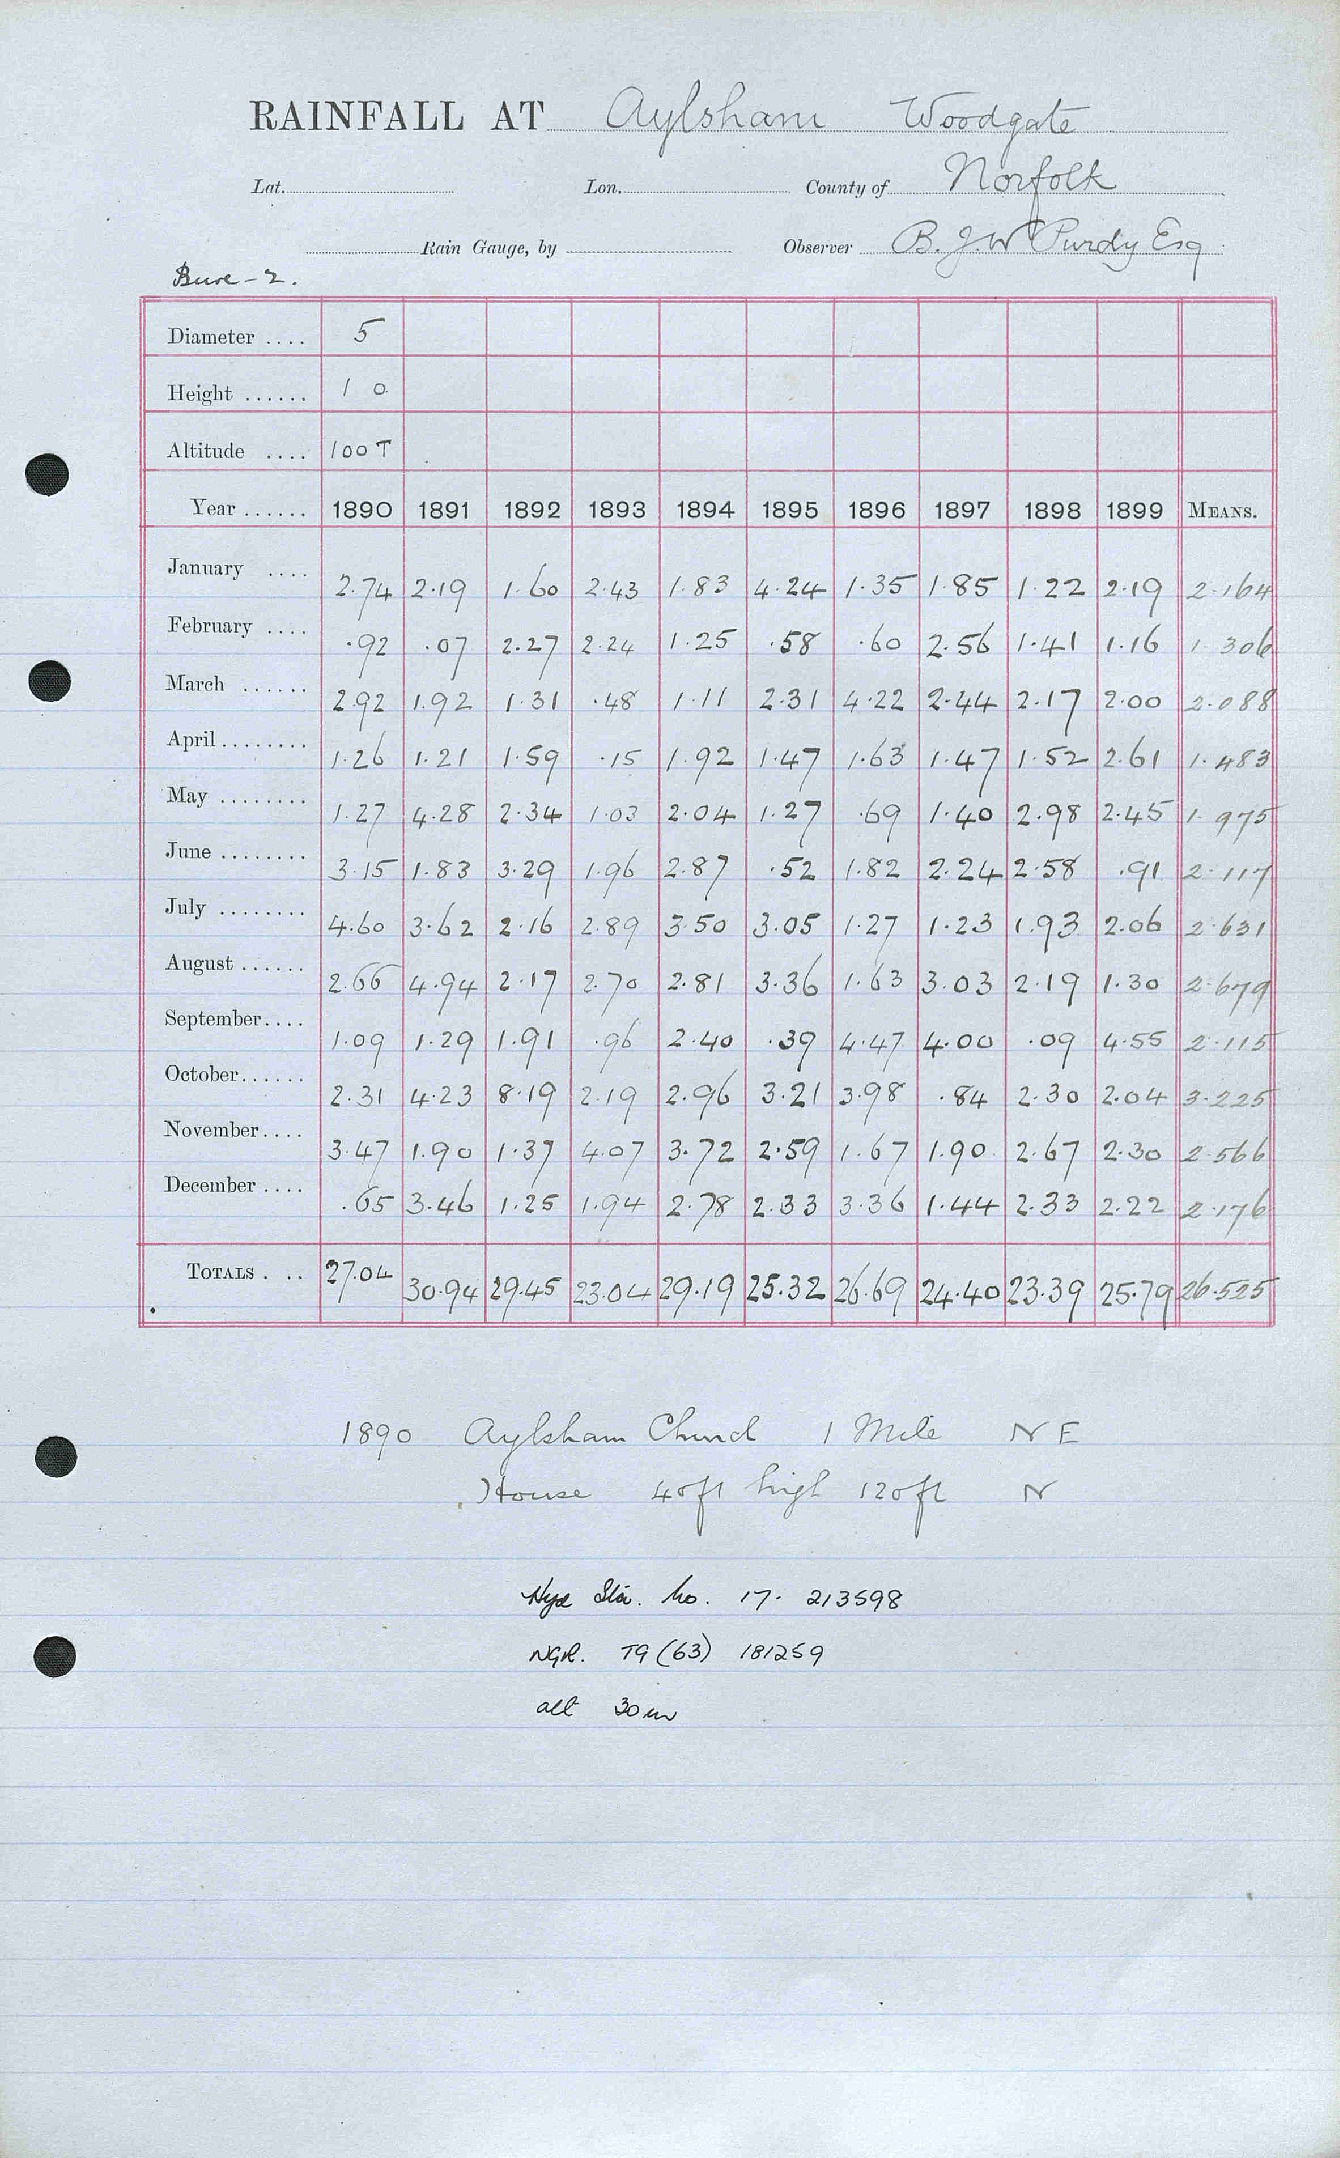 RAINFALL AT Aylsham Woodgate
Lat. Lon. County of Norfolk
Rain Gauge, by Observer B. J. W Purdy Esq
Bure - 2.
Diameter .... 5
Height ...... 1 0
Altitude .... 100 T
Year ...... 1890 1891 1892 1893 1894 1895 1896 1897 1898 1899 MEANS.
January .... 2.74 2.19 1.60 2.43 1.83 4.24 1.35 1.85 1.22 2.19 2.164
February .... .92 .07 2.27 2.24 1.25 .58 .60 2.56 1.41 1.16 1.306
March ...... 2.92 1.92 1.31 .48 1.11 2.31 4.22 2.44 2.17 2.00 2.088
April ........ 1.26 1.21 1.59 .15 1.92 1.47 1.63 1.47 1.52 2.61 1.483
May ........ 1.27 4.28 2.34 1.03 2.04 1.27 .69 1.40 2.98 2.45 1.975
June ........ 3.15 1.83 3.29 1.96 2.87 .52 1.82 2.24 2.58 .91 2.117
July ........ 4.60 3.62 2.16 2.89 3.50 3.05 1.27 1.23 1.93 2.06 2.631
August ...... 2.66 4.94 2.17 2.70 2.81 3.36 1.63 3.03 2.19 1.30 2.679
September .... 1.09 1.29 1.91 .96 2.40 .39 4.47 4.00 .09 4.55 2.115
October ...... 2.31 4.23 8.19 2.19 2.96 3.21 3.98 .84 2.30 2.04 3.225
November .... 3.47 1.90 1.37 4.07 3.72 2.59 1.67 1.90 2.67 2.30 2.566
December .... .65 3.46 1.25 1.94 2.78 2.33 3.36 1.44 2.33 2.22 2.176
TOTALS . .. 27.04 30.94 29.45 23.04 29.19 25.32 26.69 24.40 23.39 25.79 26.525
1890 Aylsham Church 1 Mile NE
House 40ft high 120ft N
Hyd Stn. No. 17. 213598
NGR. TG (63) 181259
alt 30m